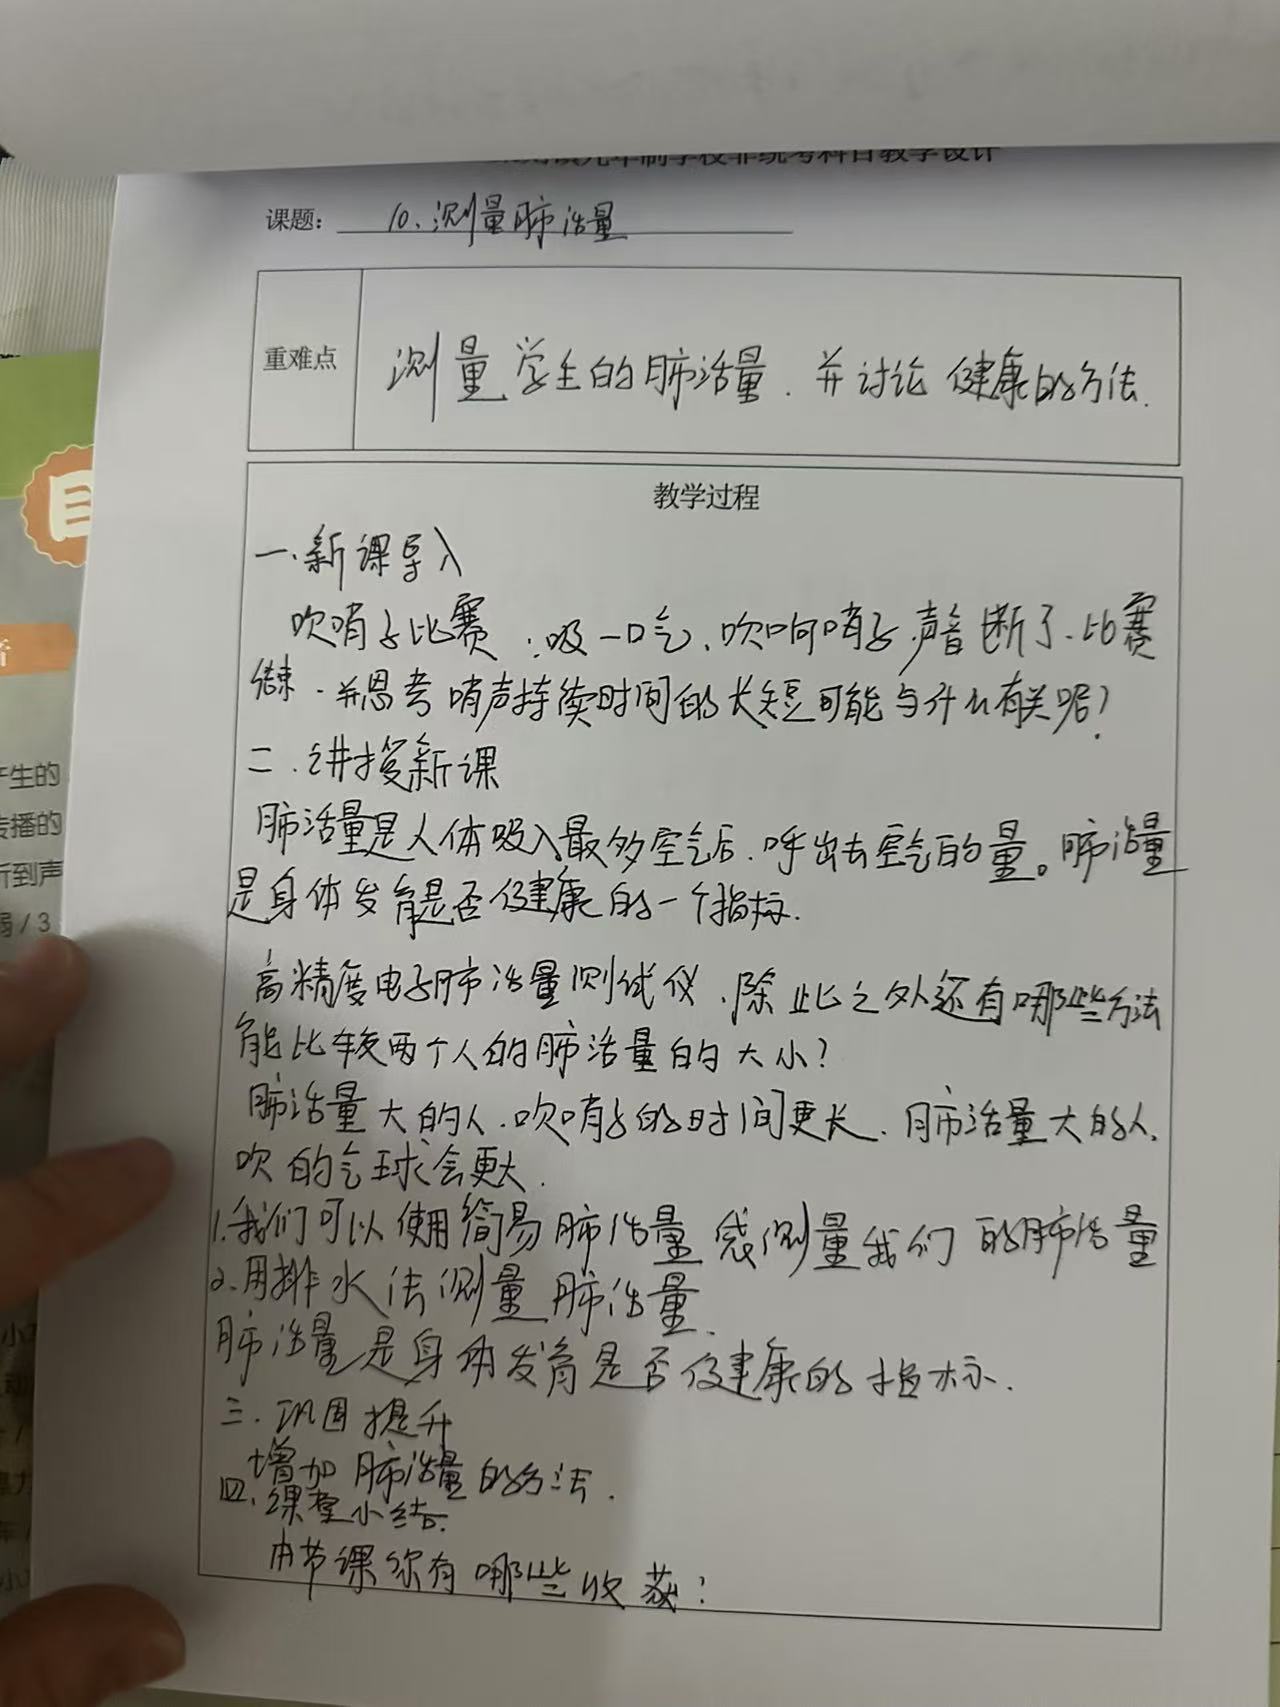 九年制学校非统考科目教学设计
课题: 10、测量肺活量
重难点
测量学生的肺活量、并讨论健康的方法.
教学过程
一.新课导入
吹哨子比赛:吸一口气、吹响哨子,声音断了、比赛
结束.并思考哨声持续时间的长短可能与什么有关呢?
二.讲授新课
肺活量是人体吸入最多空气后.呼出去空气的量。肺活量
是身体发育是否健康的一个指标.
高精度电子肺活量测试仪、除此之外还有哪些方法
能比较两个人的肺活量的大小?
肺活量大的人.吹哨子的时间更长、肺活量大的人,
吹的气球会更大.
1.我们可以使用简易肺活量袋测量我们的肺活量
2.用排水法测量肺活量.
肺活量是身体发育是否健康的指标.
三.巩固提升
增加肺活量的方法.
四、课堂小结.
本节课你有哪些收获?
产生的
传播的
听到声
弱/3
目